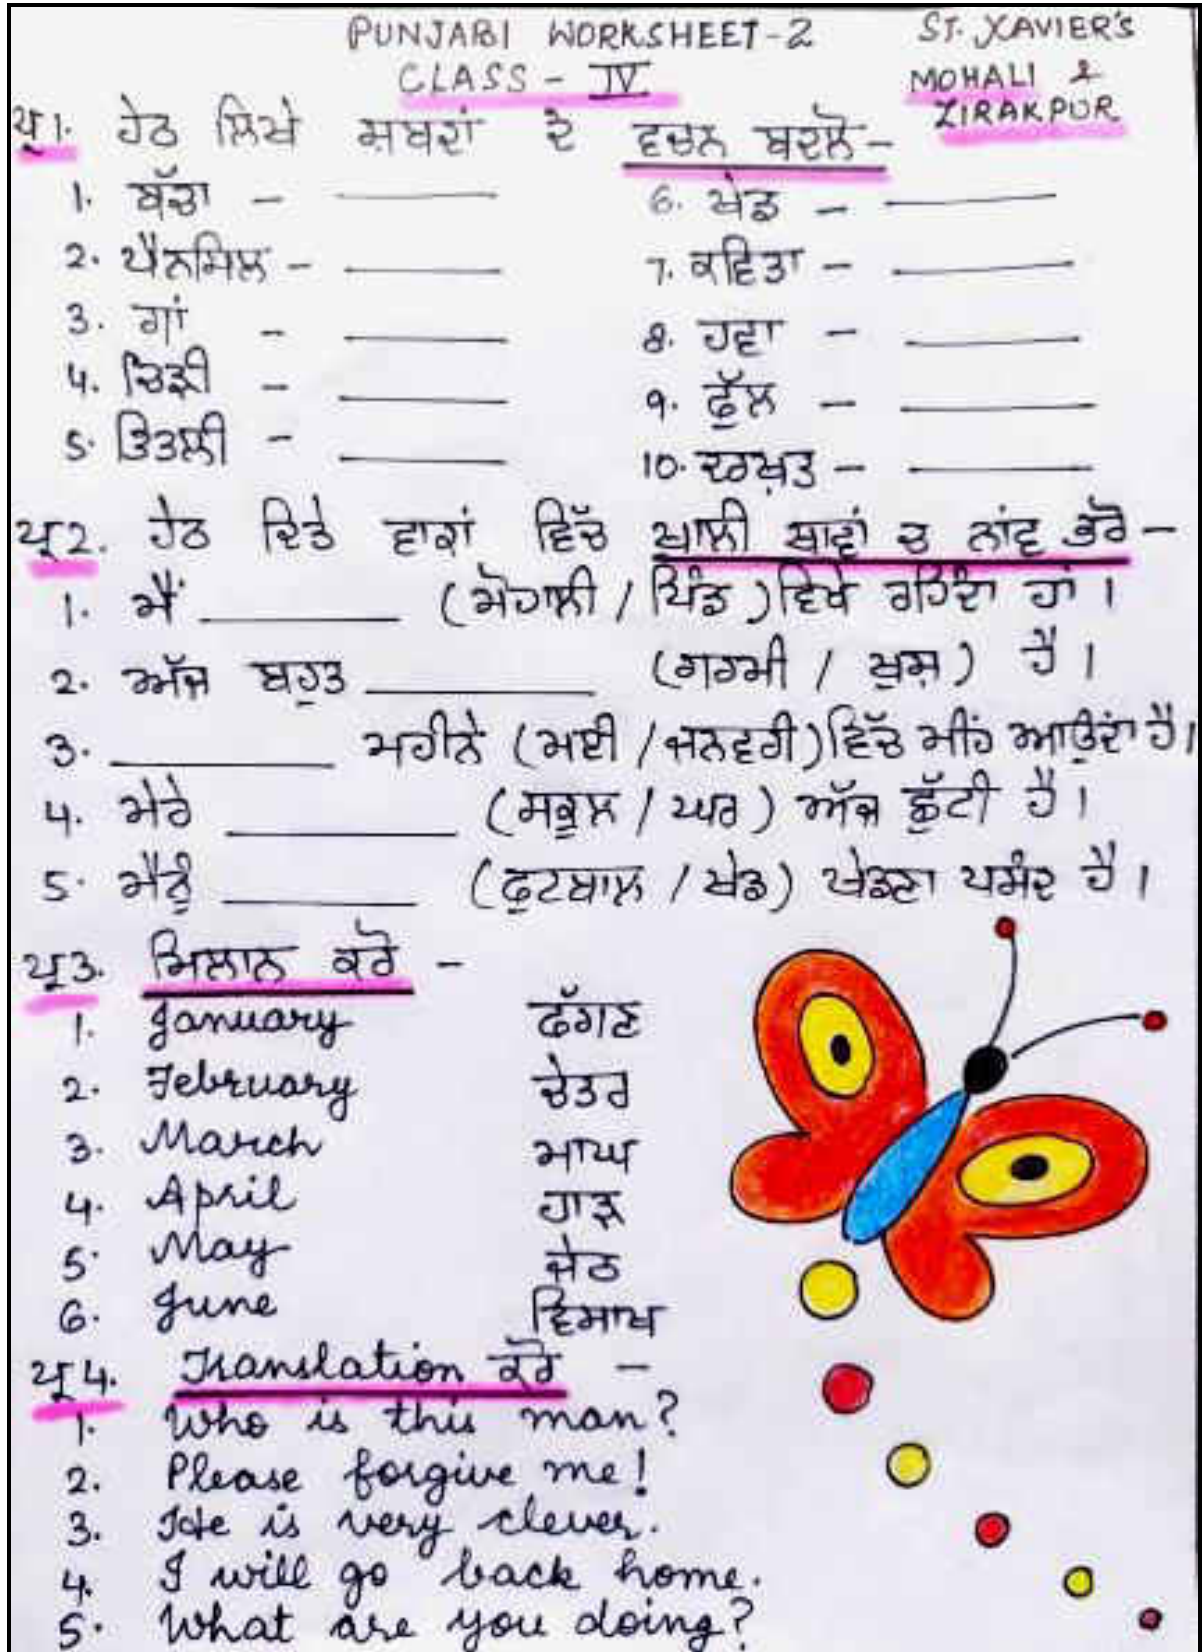 PUNJABI WORKSHEET-2 ST. XAVIER'S
CLASS - IV MOHALI &
ZIRAKPUR
ਪ੍ਰ1. ਹੇਠ ਲਿਖੇ ਸ਼ਬਦਾਂ ਦੇ ਵਚਨ ਬਦਲੋ-
1. ਬੱਚਾ - 6. ਖੇਡ -
2. ਪੈਨਸਿਲ - 7. ਕਵਿਤਾ -
3. ਗਾਂ - 8. ਹਵਾ -
4. ਚਿੜੀ - 9. ਫੁੱਲ -
5. ਤਿਤਲੀ - 10. ਦਰਖ਼ਤ -
ਪ੍ਰ2. ਹੇਠ ਦਿਤੇ ਵਾਕਾਂ ਵਿੱਚ ਖਾਲੀ ਥਾਵਾਂ ਚ ਨਾਂਵ ਭਰੋ -
1. ਮੈਂ ________ (ਮੋਹਾਲੀ / ਪਿੰਡ) ਵਿਖੇ ਰਹਿੰਦਾ ਹਾਂ ।
2. ਅੱਜ ਬਹੁਤ ________ (ਗਰਮੀ / ਖੁਸ਼) ਹੈ ।
3. ________ ਮਹੀਨੇ (ਮਈ / ਜਨਵਰੀ) ਵਿੱਚ ਮੀਂਹ ਆਉਂਦਾ ਹੈ।
4. ਮੇਰੇ ________ (ਸਕੂਲ / ਘਰ) ਅੱਜ ਛੁੱਟੀ ਹੈ ।
5. ਮੈਨੂੰ ________ (ਫੁਟਬਾਲ / ਖੇਡ) ਖੇਡਣਾ ਪਸੰਦ ਹੈ ।
ਪ੍ਰ3. ਮਿਲਾਨ ਕਰੋ -
1. January ਫੱਗਣ
2. February ਚੇਤਰ
3. March ਮਾਘ
4. April ਹਾੜ
5. May ਜੇਠ
6. June ਵਿਸਾਖ
ਪ੍ਰ4. Translation ਕਰੋ -
1. Who is this man?
2. Please forgive me!
3. He is very clever.
4. I will go back home.
5. What are you doing?